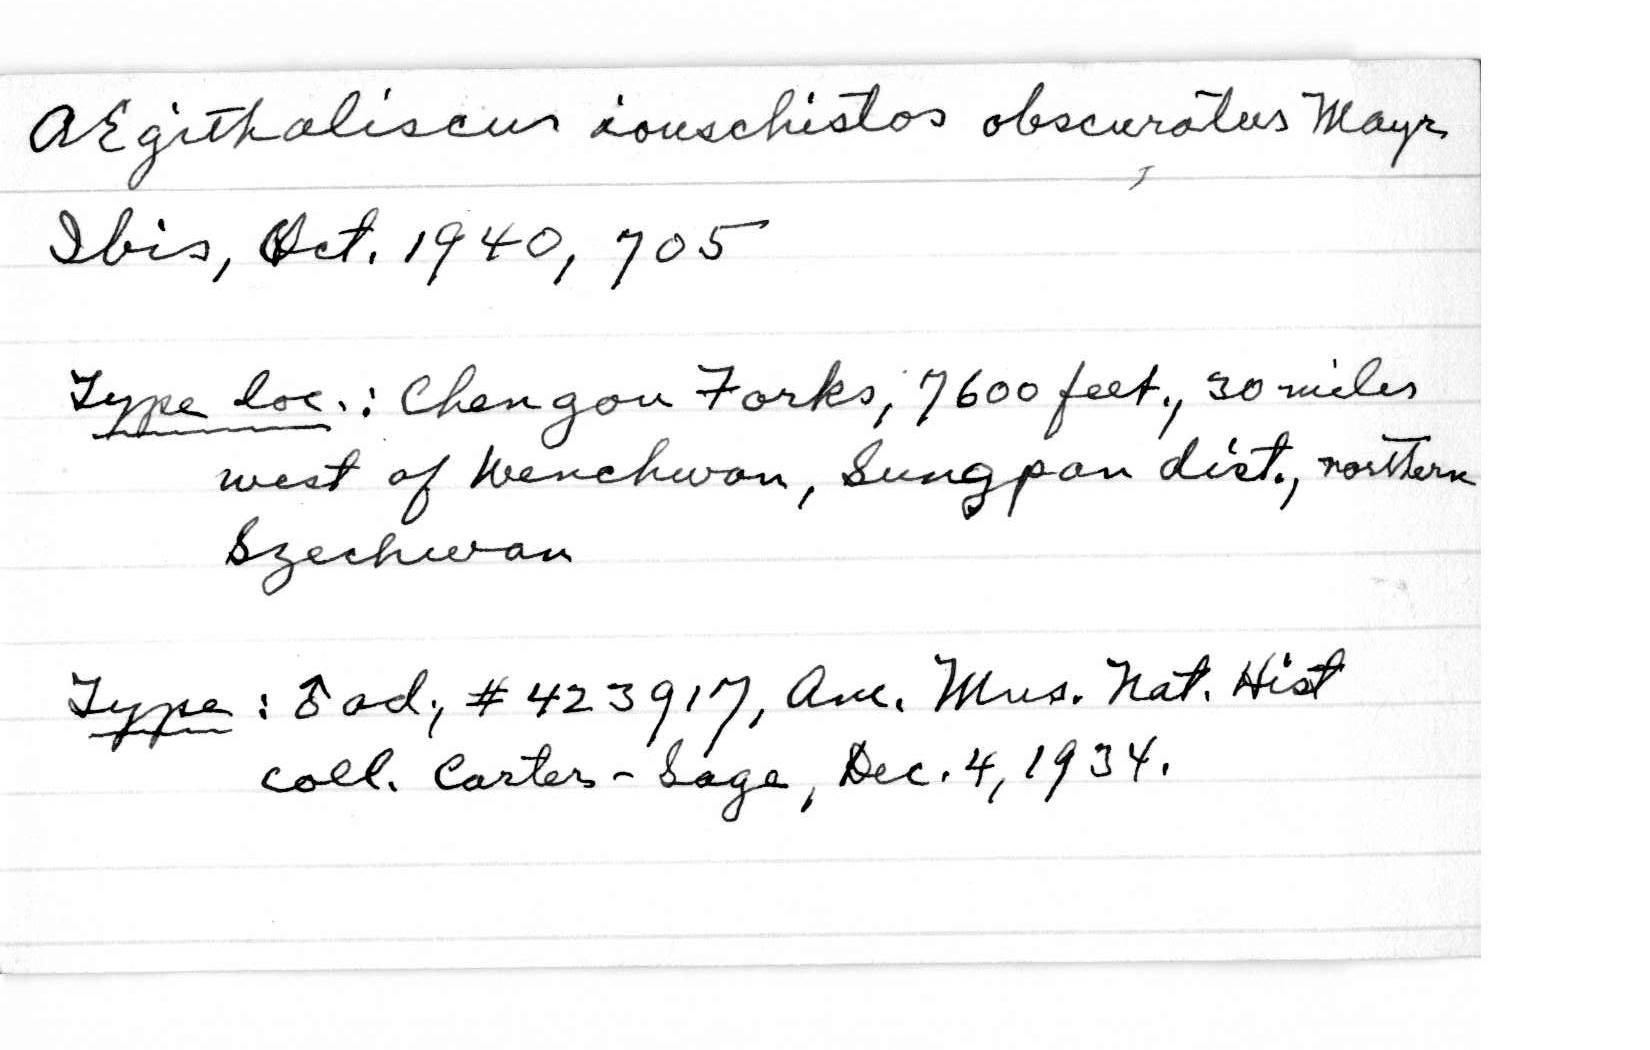 AEgithaliscus iouschistos obscuratus Mayr,
Ibis, Oct. 1940, 705
Type loc.: Chengou Forks, 7600 feet., 30 miles
west of Wenchwan, Sungpan dist., northern
Szechwan
Type: ♂ ad., #423917, Am. Mus. Nat. Hist
coll. Carter-Sage, Dec. 4, 1934.